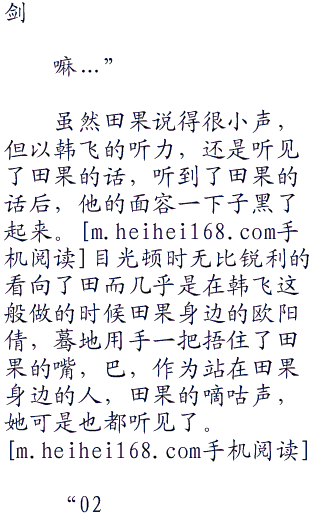 剑
嘛…”
虽然田果说得很小声，
但以韩飞的听力，还是听见
了田果的话，听到了田果的
话后，他的面容一下子黑了
起来。[m.heihei168.com手
机阅读]目光顿时无比锐利的
看向了田而几乎是在韩飞这
般做的时候田果身边的欧阳
倩，蓦地用手一把捂住了田
果的嘴，巴，作为站在田果
身边的人，田果的嘀咕声，
她可是也都听见了。
[m.heihei168.com手机阅读]
“02